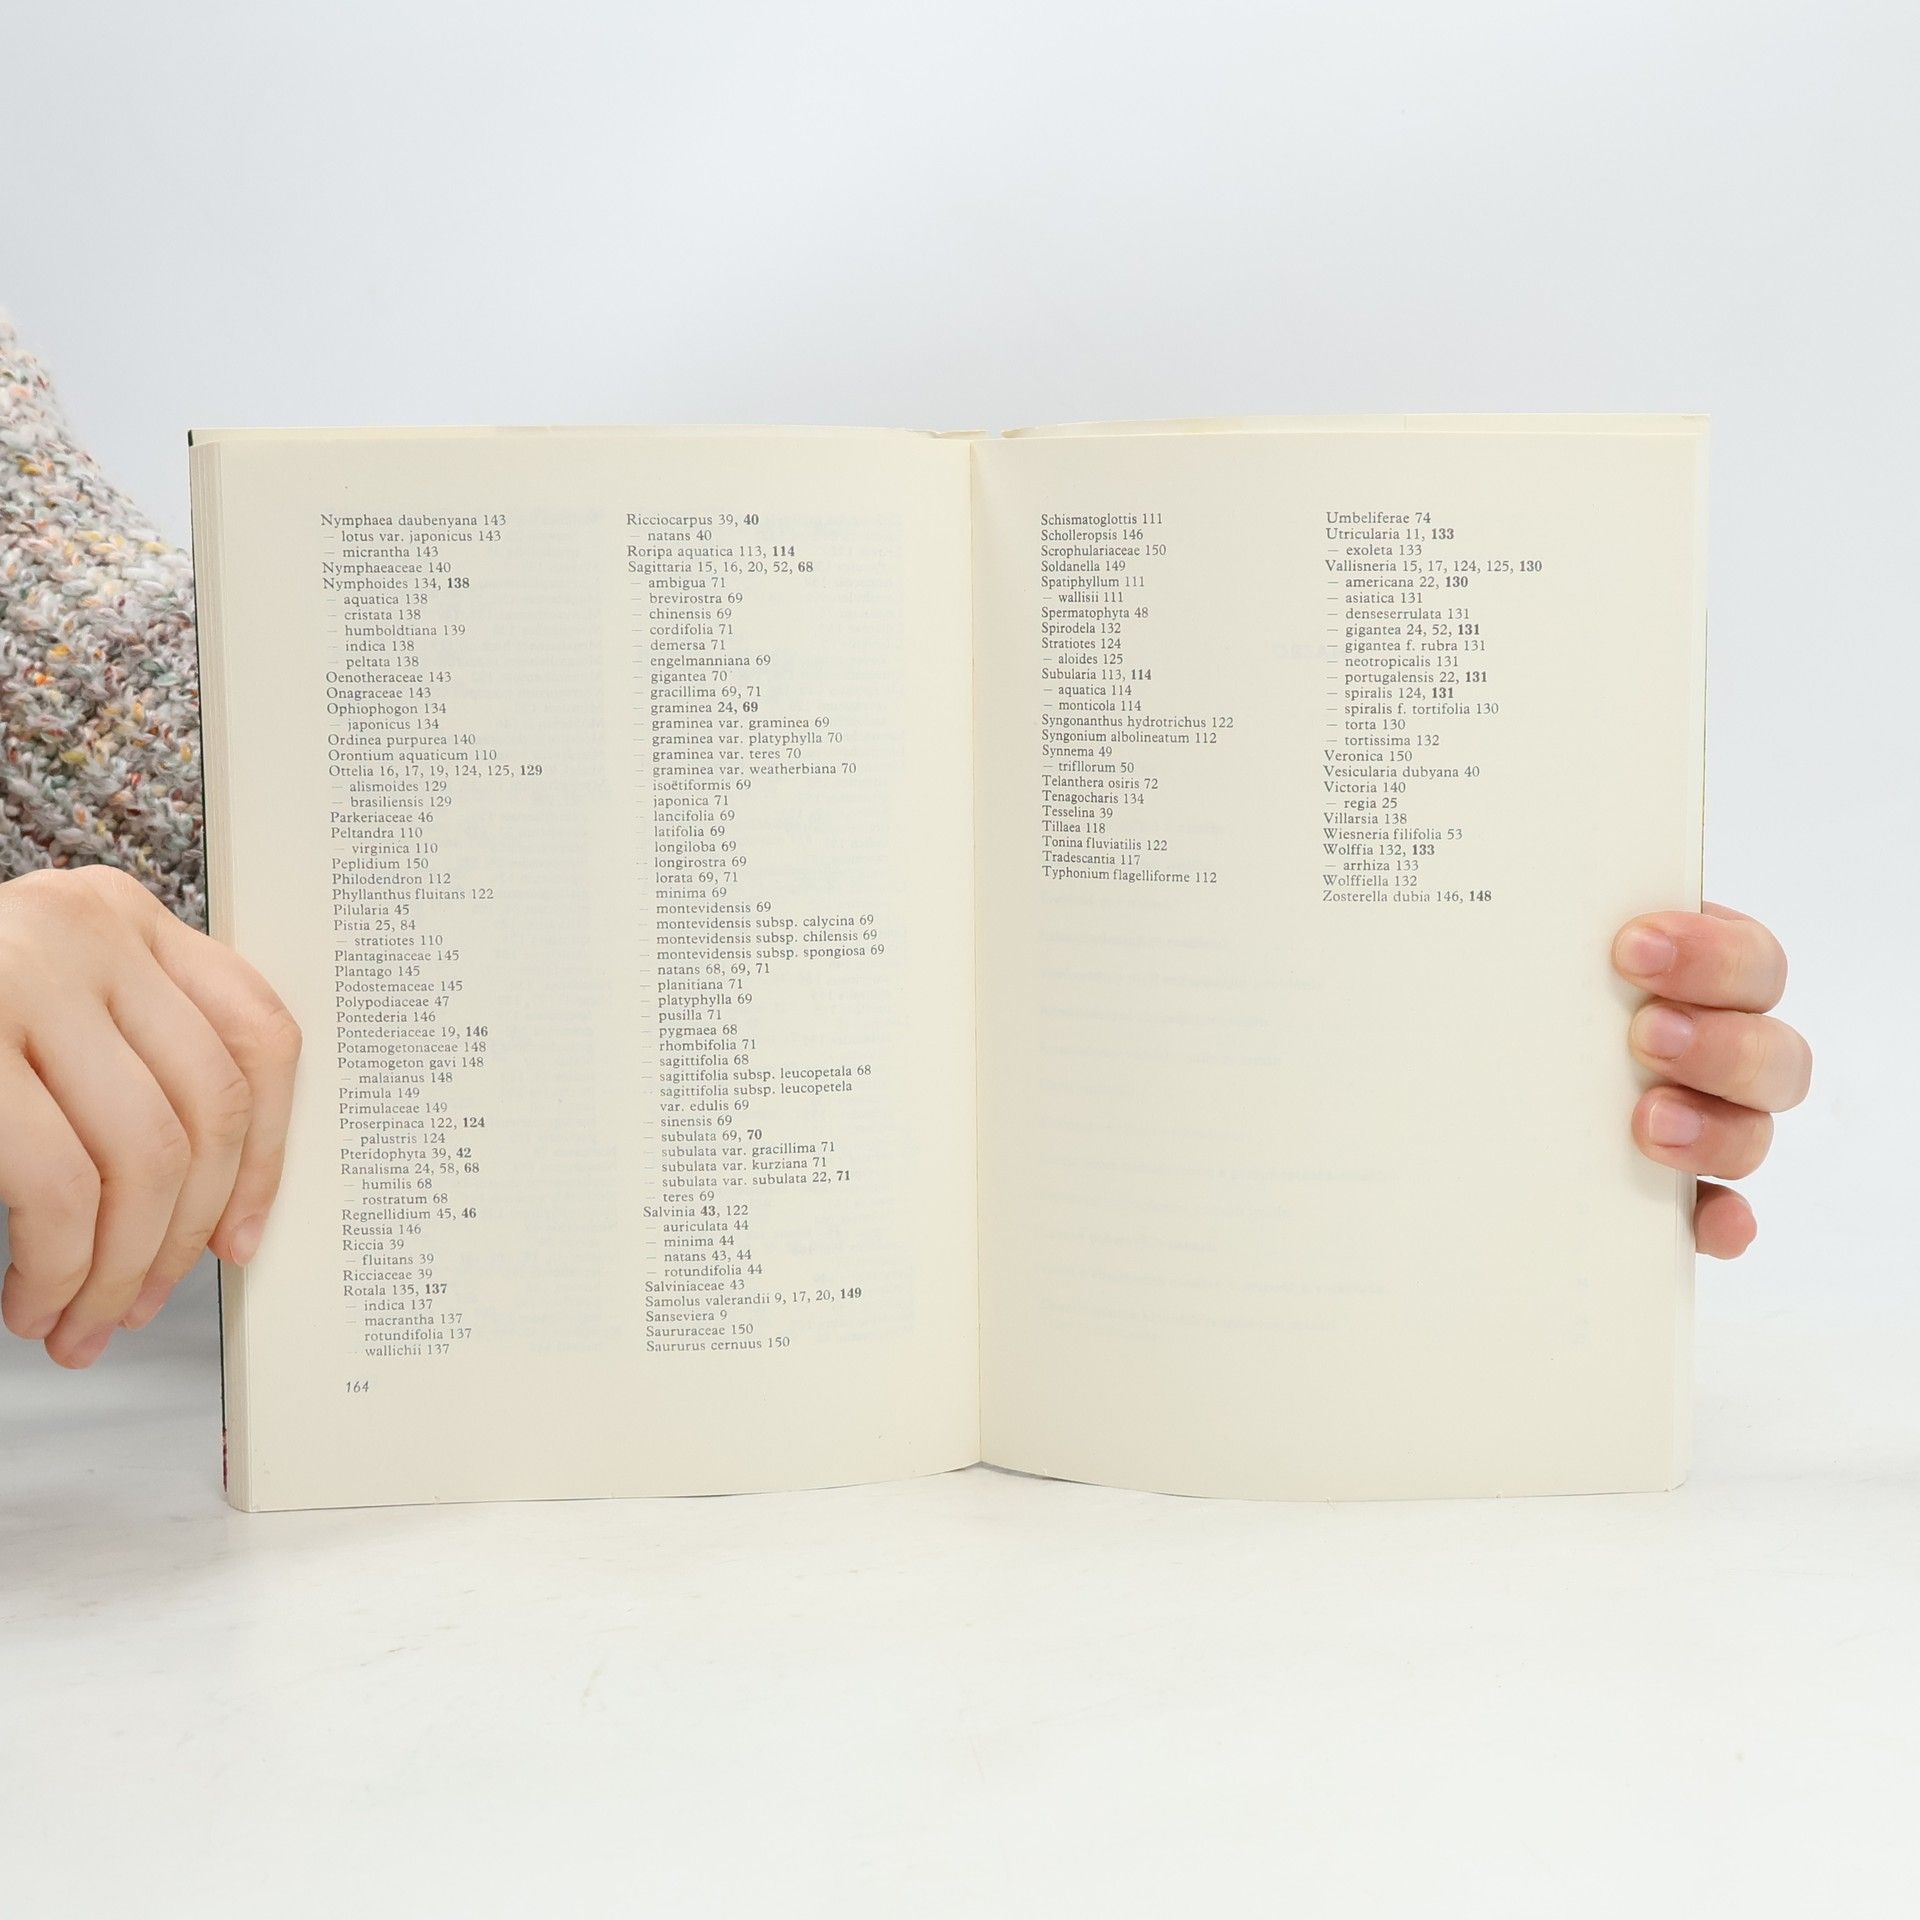 Nymphaea daubenyana 143
– lotus var. japonicus 143
– micrantha 143
Nymphaeaceae 140
Nymphoides 134, 138
– aquatica 138
– cristata 138
– humboldtiana 139
– indica 138
– peltata 138
Oenotheraceae 143
Onagraceae 143
Ophiophogon 134
– japonicus 134
Ordinea purpurea 140
Orontium aquaticum 110
Ottelia 16, 17, 19, 124, 125, 129
– alismoides 129
– brasiliensis 129
Parkeriaceae 46
Peltandra 110
– virginica 110
Peplidium 150
Philodendron 112
Phyllanthus fluitans 122
Pilularia 45
Pistia 25, 84
– stratiotes 110
Plantaginaceae 145
Plantago 145
Podostemaceae 145
Polypodiaceae 47
Pontederia 146
Pontederiaceae 19, 146
Potamogetonaceae 148
Potamogeton gavi 148
– malaianus 148
Primula 149
Primulaceae 149
Proserpinaca 122, 124
– palustris 124
Pteridophyta 39, 42
Ranalisma 24, 58, 68
– humilis 68
– rostratum 68
Regnellidium 45, 46
Reussia 146
Riccia 39
– fluitans 39
Ricciaceae 39
Rotala 135, 137
– indica 137
– macrantha 137
rotundifolia 137
– wallichii 137
164
Ricciocarpus 39, 40
– natans 40
Roripa aquatica 113, 114
Sagittaria 15, 16, 20, 52, 68
– ambigua 71
– brevirostra 69
– chinensis 69
– cordifolia 71
– demersa 71
– engelmanniana 69
– gigantea 70
– gracillima 69, 71
– graminea 24, 69
– graminea var. graminea 69
– graminea var. platyphylla 70
– graminea var. teres 70
– graminea var. weatherbiana 70
– isoëtiformis 69
– japonica 71
– lancifolia 69
– latifolia 69
– longiloba 69
– longirostra 69
– lorata 69, 71
– minima 69
– montevidensis 69
– montevidensis subsp. calycina 69
– montevidensis subsp. chilensis 69
– montevidensis subsp. spongiosa 69
– natans 68, 69, 71
– planitiana 71
– platyphylla 69
– pusilla 71
– pygmaea 68
– rhombifolia 71
– sagittifolia 68
– sagittifolia subsp. leucopetala 68
– sagittifolia subsp. leucopetela
var. edulis 69
– sinensis 69
– subulata 69, 70
– subulata var. gracillima 71
– subulata var. kurziana 71
– subulata var. subulata 22, 71
– teres 69
Salvinia 43, 122
– auriculata 44
– minima 44
– natans 43, 44
– rotundifolia 44
Salviniaceae 43
Samolus valerandii 9, 17, 20, 149
Sanseviera 9
Saururaceae 150
Saururus cernuus 150
Schismatoglottis 111
Scholleropsis 146
Scrophulariaceae 150
Soldanella 149
Spatiphyllum 111
– wallisii 111
Spermatophyta 48
Spirodela 132
Stratiotes 124
– aloides 125
Subularia 113, 114
– aquatica 114
– monticola 114
Syngonanthus hydrotrichus 122
Syngonium albolineatum 112
Synnema 49
– trifllorum 50
Telanthera osiris 72
Tenagocharis 134
Tesselina 39
Tillaea 118
Tonina fluviatilis 122
Tradescantia 117
Typhonium flagelliforme 112
Umbeliferae 74
Utricularia 11, 133
– exoleta 133
Vallisneria 15, 17, 124, 125, 130
– americana 22, 130
– asiatica 131
– denseserrulata 131
– gigantea 24, 52, 131
– gigantea f. rubra 131
– neotropicalis 131
– portugalensis 22, 131
– spiralis 124, 131
– spiralis f. tortifolia 130
– torta 130
– tortissima 132
Veronica 150
Vesicularia dubyana 40
Victoria 140
– regia 25
Villarsia 138
Wiesneria filifolia 53
Wolffia 132, 133
– arrhiza 133
Wolffiella 132
Zosterella dubia 146, 148